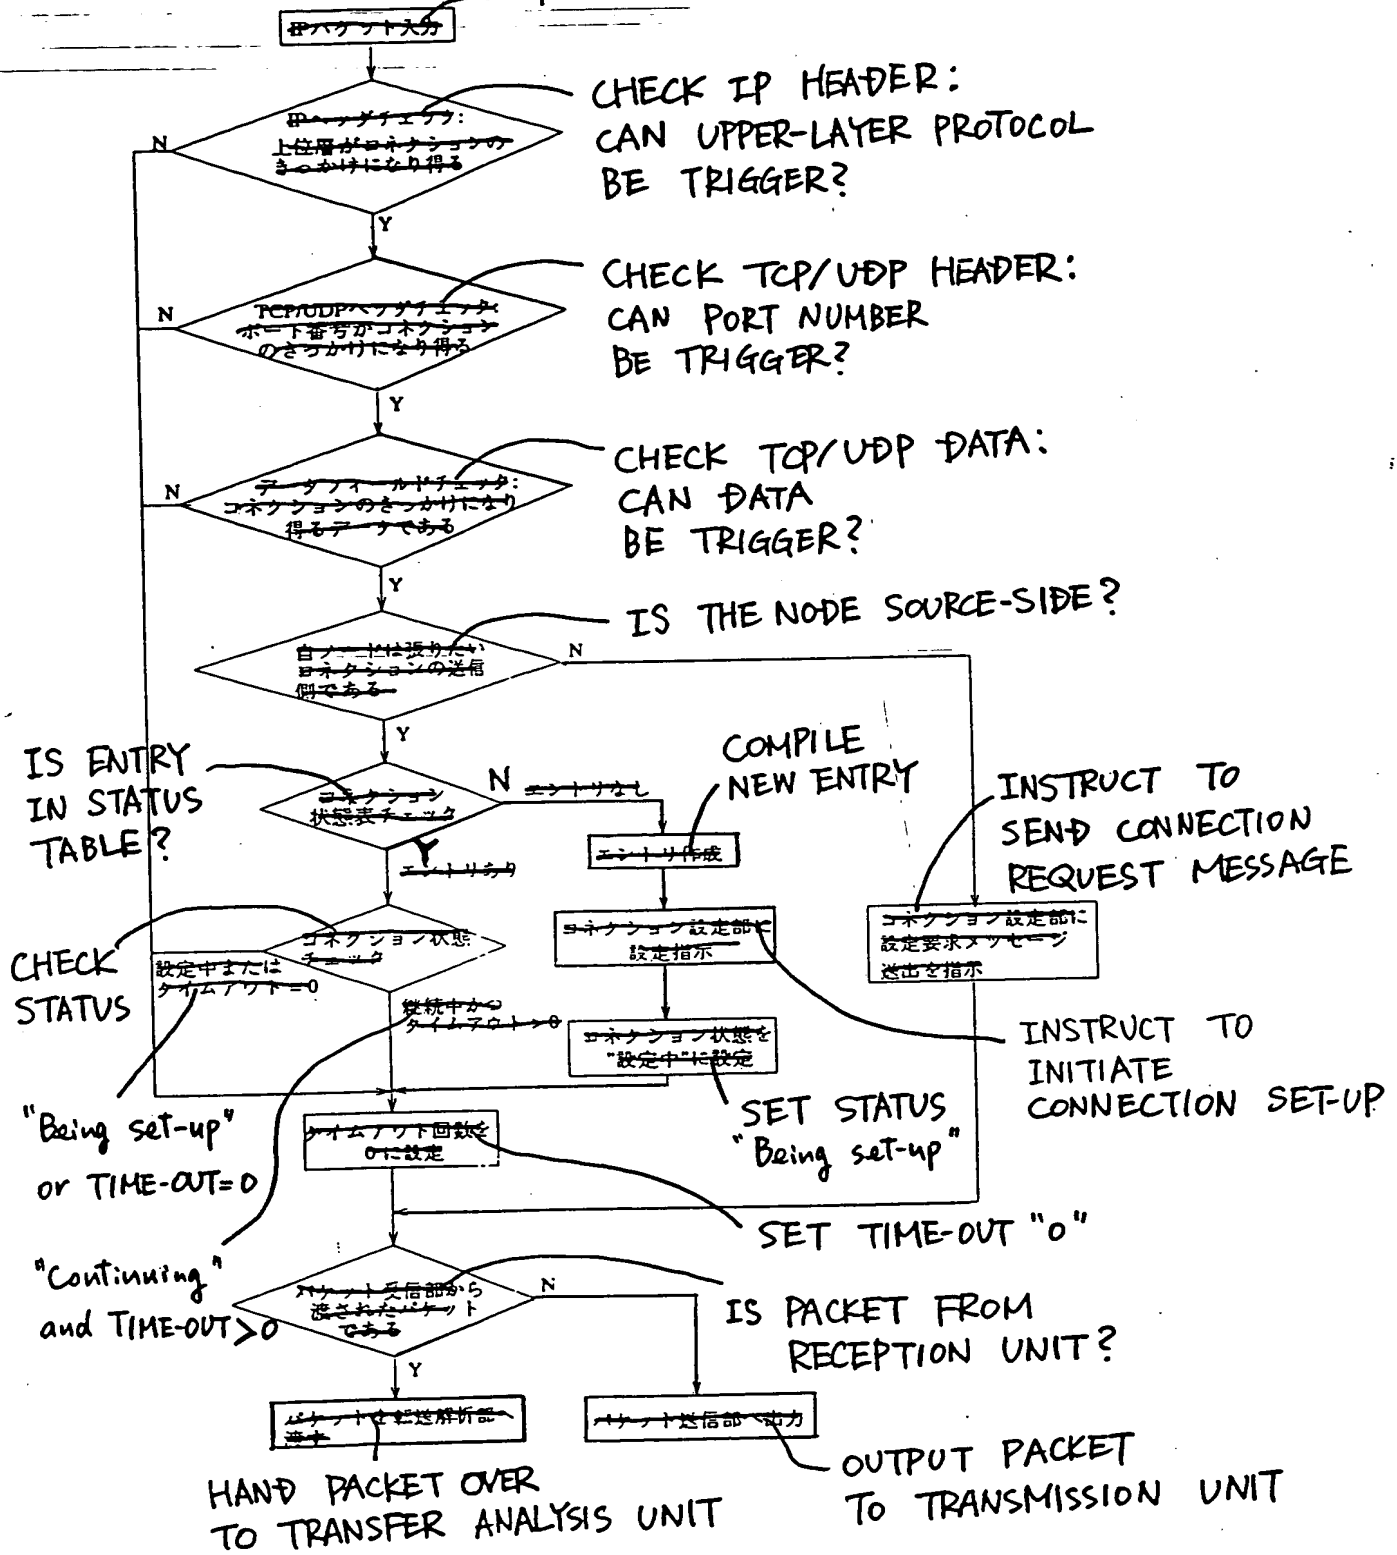 IPパケット入力
IPヘッダチェック:
上位層がコネクションの
きっかけになり得る
N
Y
CHECK IP HEADER:
CAN UPPER-LAYER PROTOCOL
BE TRIGGER?
TCP/UDPヘッダチェック:
ポート番号がコネクション
のきっかけになり得る
N
Y
CHECK TCP/UDP HEADER:
CAN PORT NUMBER
BE TRIGGER?
データフィールドチェック:
コネクションのきっかけになり
得るデータである
N
Y
CHECK TCP/UDP DATA:
CAN DATA
BE TRIGGER?
自ノードは張りたい
コネクションの送信
側である
N
Y
IS THE NODE SOURCE-SIDE?
IS ENTRY
IN STATUS
TABLE?
コネクション
状態表チェック
N
エントリなし
Y
エントリあり
COMPILE
NEW ENTRY
エントリ作成
INSTRUCT TO
SEND CONNECTION
REQUEST MESSAGE
コネクション設定部に
設定要求メッセージ
送出を指示
コネクション設定部に
設定指示
CHECK
STATUS
コネクション状態
チェック
設定中または
タイムアウト=0
継続中かつ
タイムアウト>0
コネクション状態を
"設定中"に設定
INSTRUCT TO
INITIATE
CONNECTION SET-UP
"Being set-up"
or TIME-OUT=0
SET STATUS
"Being set-up"
タイムアウト回数を
0に設定
SET TIME-OUT "0"
"Continuing"
and TIME-OUT>0
パケット受信部から
渡されたパケット
である
N
Y
IS PACKET FROM
RECEPTION UNIT?
パケットを転送解析部へ
渡す
パケット送信部へ出力
HAND PACKET OVER
TO TRANSFER ANALYSIS UNIT
OUTPUT PACKET
TO TRANSMISSION UNIT